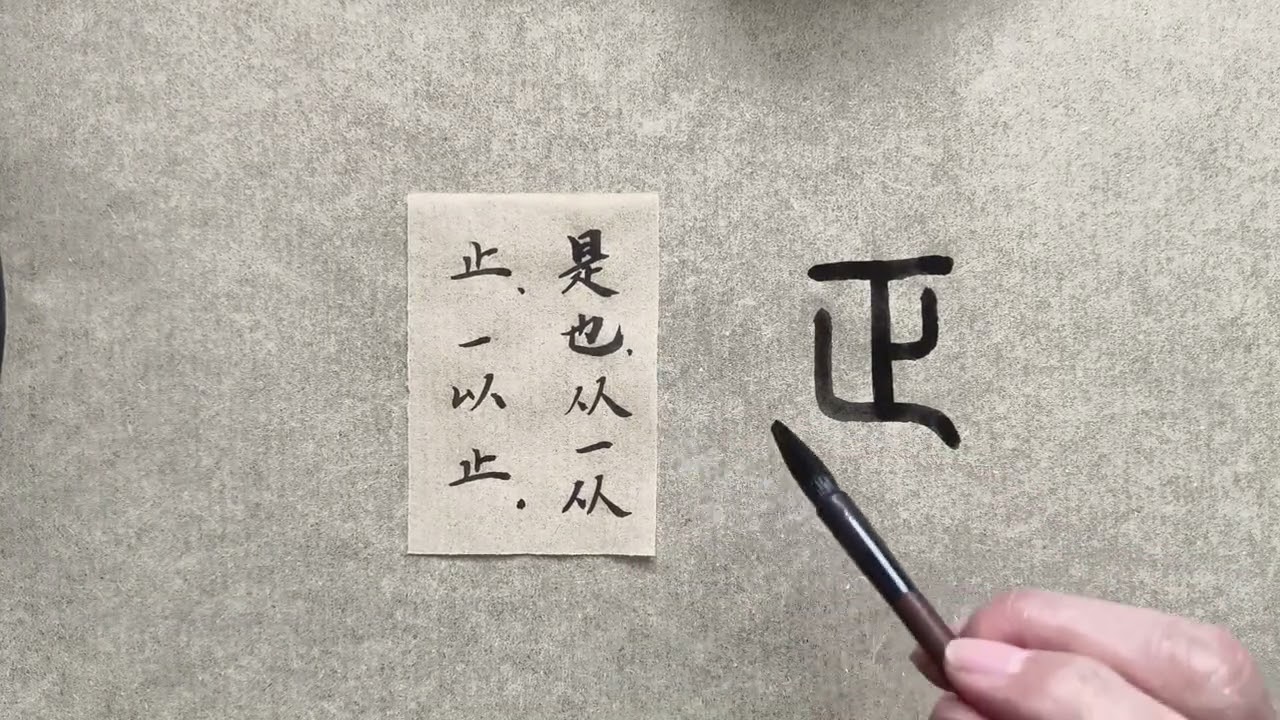 正
是也，从一从
止，一以止。